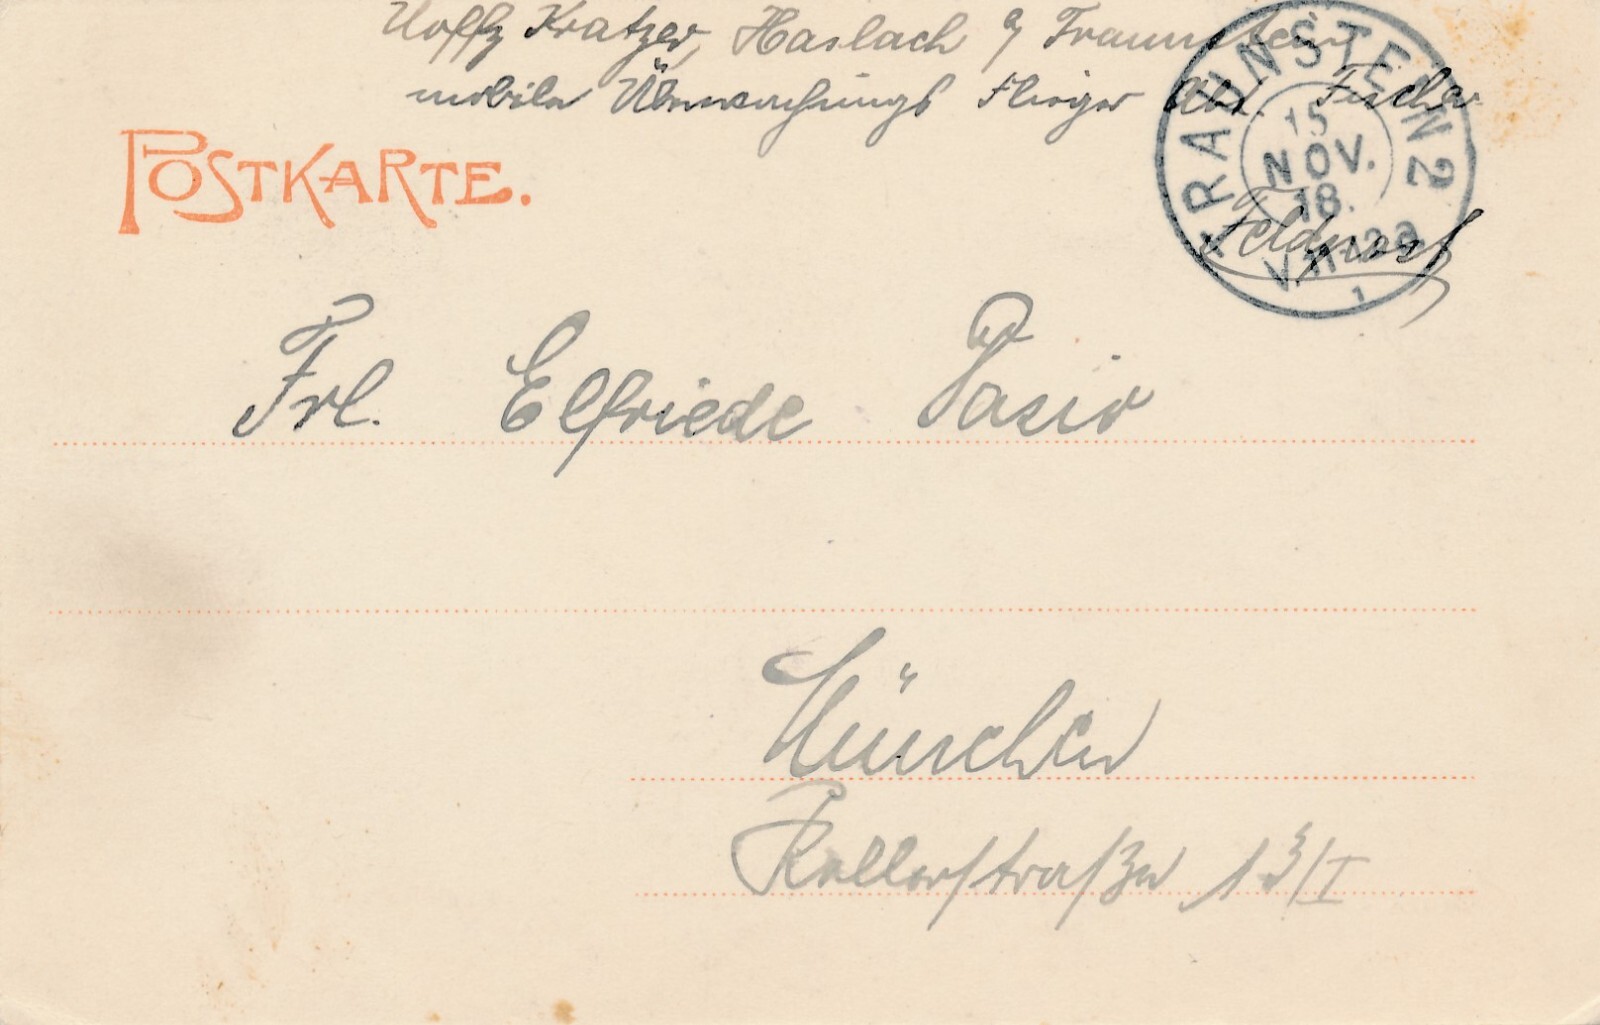 Uoffz Kratzer, Haslach b/ Traunstein
mobile Überwachungs Flieger Abt. Fischer
POSTKARTE.
TRAUNSTEIN 2
15
NOV.
18.
Feldpost
Frl. Elfriede
München
Kellerstraße 13/I